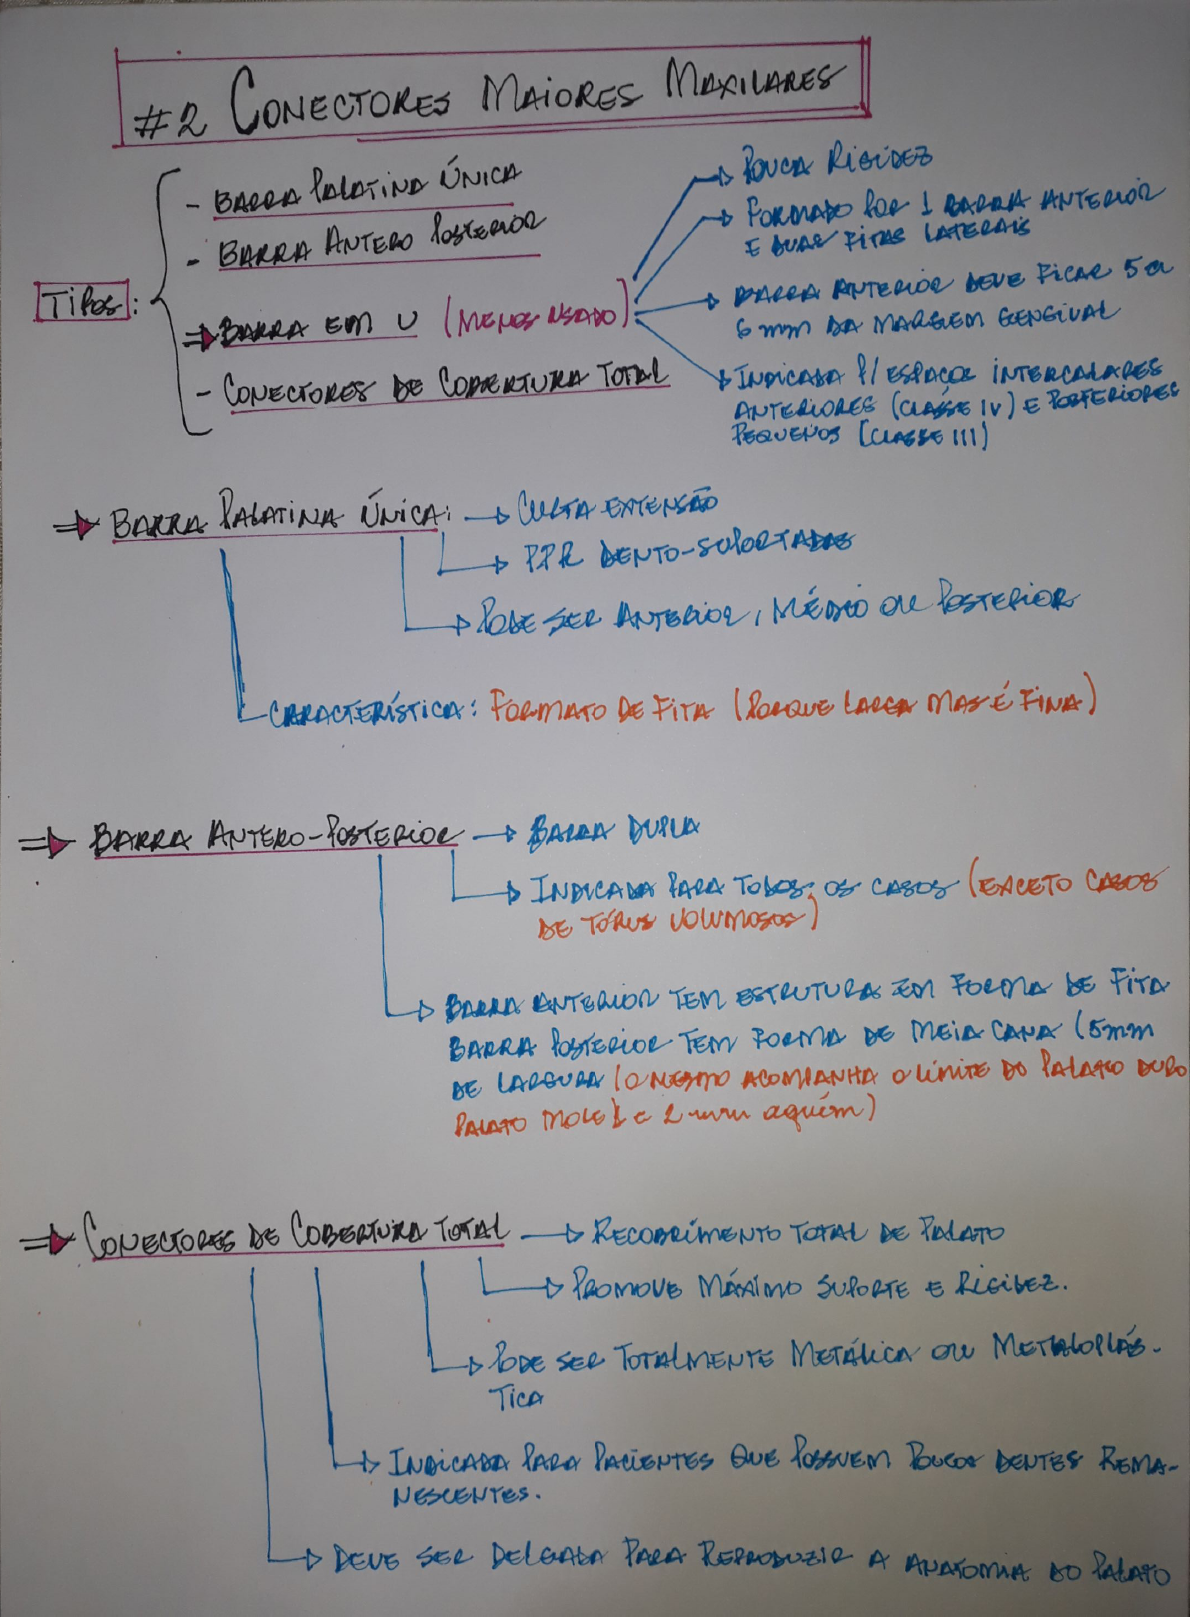 #2 CONECTORES MAIORES MAXILARES
TIPOS:
- BARRA PALATINA ÚNICA
- BARRA ANTERO POSTERIOR
⇒ BARRA EM U (MENOS USADO)
- CONECTORES DE COBERTURA TOTAL
→ POUCA RIGIDEZ
→ FORMADO POR 1 BARRA ANTERIOR
E DUAS FITAS LATERAIS
→ BARRA ANTERIOR DEVE FICAR 5 a
6 mm DA MARGEM GENGIVAL
→ INDICADA P/ ESPAÇOS INTERCALARES
ANTERIORES (CLASSE IV) E POSTERIORES
PEQUENOS (CLASSE III)
⇒ BARRA PALATINA ÚNICA: → CURTA EXTENSÃO
→ PPR DENTO-SUPORTADAS
→ PODE SER ANTERIOR, MÉDIO OU POSTERIOR
CARACTERÍSTICA: FORMATO DE FITA (PORQUE LARGA MAS É FINA)
⇒ BARRA ANTERO-POSTERIOR → BARRA DUPLA
→ INDICADA PARA TODOS OS CASOS (EXCETO CASOS
DE TÓRUS VOLUMOSOS)
→ BARRA ANTERIOR TEM ESTRUTURA EM FORMA DE FITA
BARRA POSTERIOR TEM FORMA DE MEIA CANA (5mm
DE LARGURA (O MESMO ACOMPANHA O LÍMITE DO PALATO DURO
PALATO MOLE 2 mm aquém)
⇒ CONECTORES DE COBERTURA TOTAL → RECOBRIMENTO TOTAL DE PALATO
→ PROMOVE MÁXIMO SUPORTE E RIGIDEZ.
→ PODE SER TOTALMENTE METÁLICA OU METALOPLÁS-
TICA
→ INDICADA PARA PACIENTES QUE POSSUEM POUCOS DENTES REMA-
NESCENTES.
→ DEVE SER DELGADA PARA REPRODUZIR A ANATOMIA DO PALATO